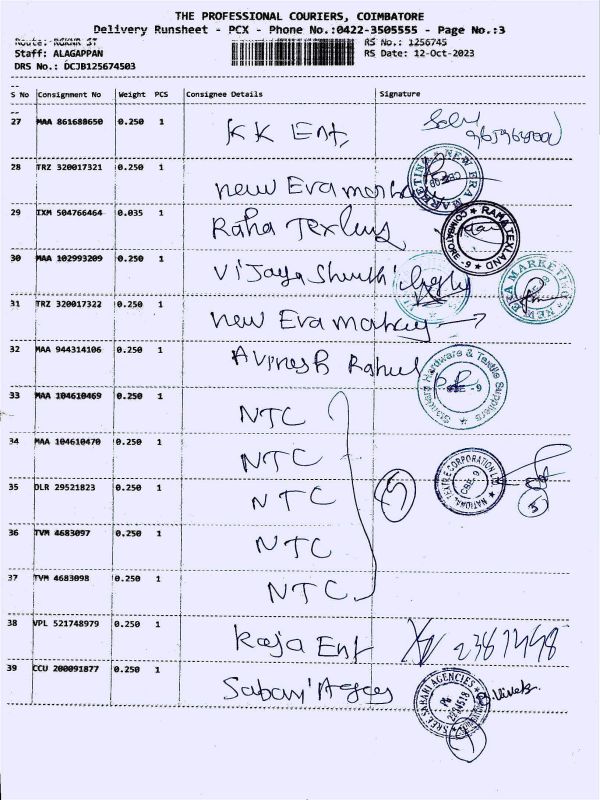 THE PROFESSIONAL COURIERS, COIMBATORE
Delivery Runsheet - PCX - Phone No.:0422-3505555 - Page No.:3
Route: RGKNR ST RS No.: 1256745
Staff: ALAGAPPAN RS Date: 12-Oct-2023
DRS No.: DCJB125674503
S No Consignment No Weight PCS Consignee Details Signature
27 MAA 861688650 0.250 1 KK Ent,
28 TRZ 320017321 0.250 1 new Era
NEW ERA MARKETING
29 IXM 504766464 0.035 1 Raha
RAHA TEXLAND COIMBATORE - 9
30 MAA 102993209 0.250 1 Vijaya
NEW ERA MARKETING
31 TRZ 320017322 0.250 1 new Era
32 MAA 944314106 0.250 1 Avinash Rahul
Standard Hardware & Textile Suppliers
33 MAA 104610469 0.250 1 NTC
34 MAA 104610470 0.250 1 NTC
NATIONAL TEXTILE CORPORATION LTD. CBE. 9
35 DLR 29521823 0.250 1 NTC 5 5
36 TVM 4683097 0.250 1 NTC
37 TVM 4683098 0.250 1 NTC
38 VPL 521748979 0.250 1 Raja Ent
39 CCU 200091877 0.250 1 Sabari
SREE SABARI AGENCIES